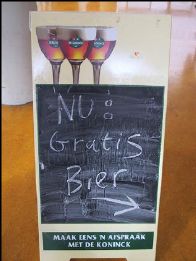 NU:
Gratis
Bier
→
MAAK EENS 'N AFSPRAAK
MET DE KONINCK